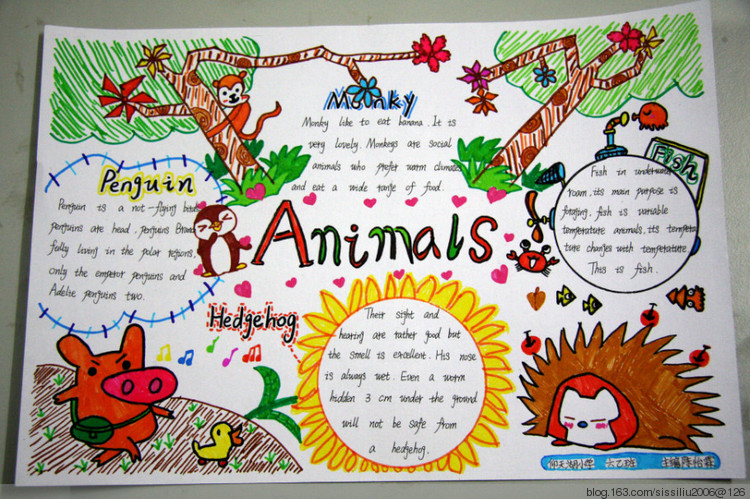 Monky
Monky like to eat banana. It is
very lovely. Monkeys are social
animals who prefer warm climates
and eat a wide range of food.
Penguin
Penguin is a not-flying bird
penguins are head. penguins
fully living in the polar regions,
only the emperor penguins and
Adelie penguins two.
Fish
Fish in underwater
roam, its main purpose is
foraging. fish is variable
temperature animals, its tempera
ture changes with temperature.
This is fish.
Animals
Hedgehog
Their sight and
hearing are rather good but
the smell is excellent. His nose
is always wet. Even a worm
hidden 3 cm under the ground
will not be safe from
a hedgehog.
blog.163.com/sissiliu2006@126